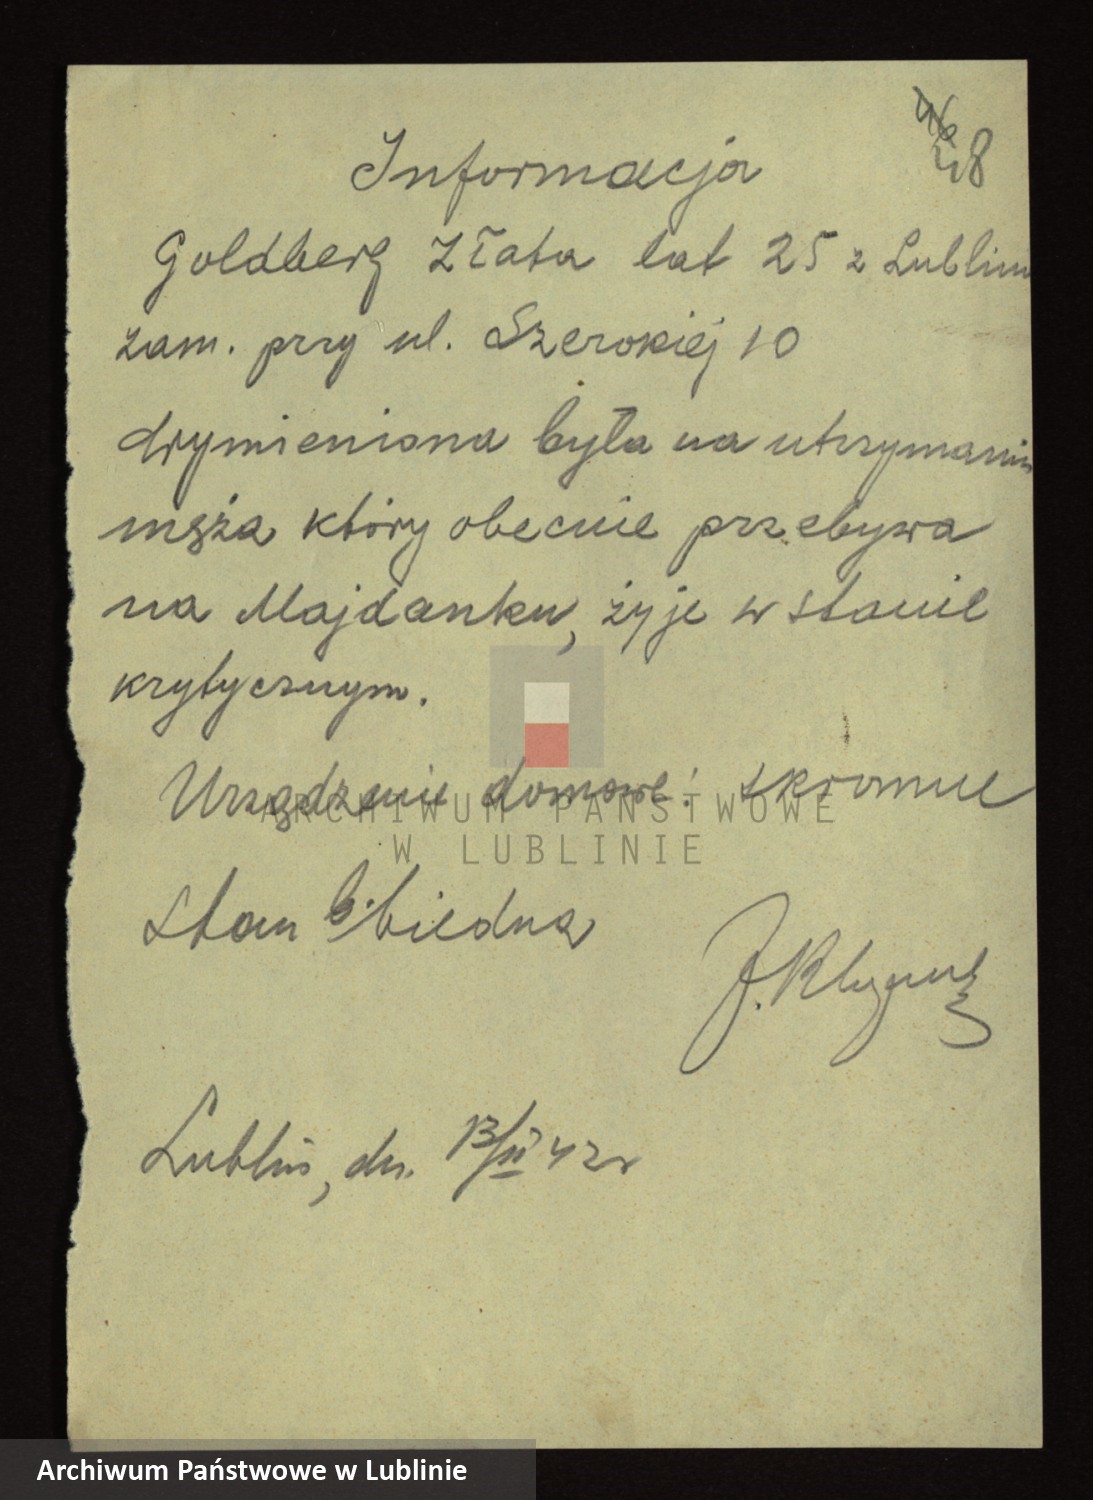 46
48
Informacja
Goldberg Złata lat 25 z Lublina
zam. przy ul. Szerokiej 10
Wymieniona była na utrzymaniu
męża który obecnie przebywa
na Majdanku, żyje w stanie
krytycznym.
Urządzenie domowe: skromne
Stan b. biedna
Lublin, dn. 13/III 42 r
ARCHIWUM PAŃSTWOWE
W LUBLINIE
Archiwum Państwowe w Lublinie